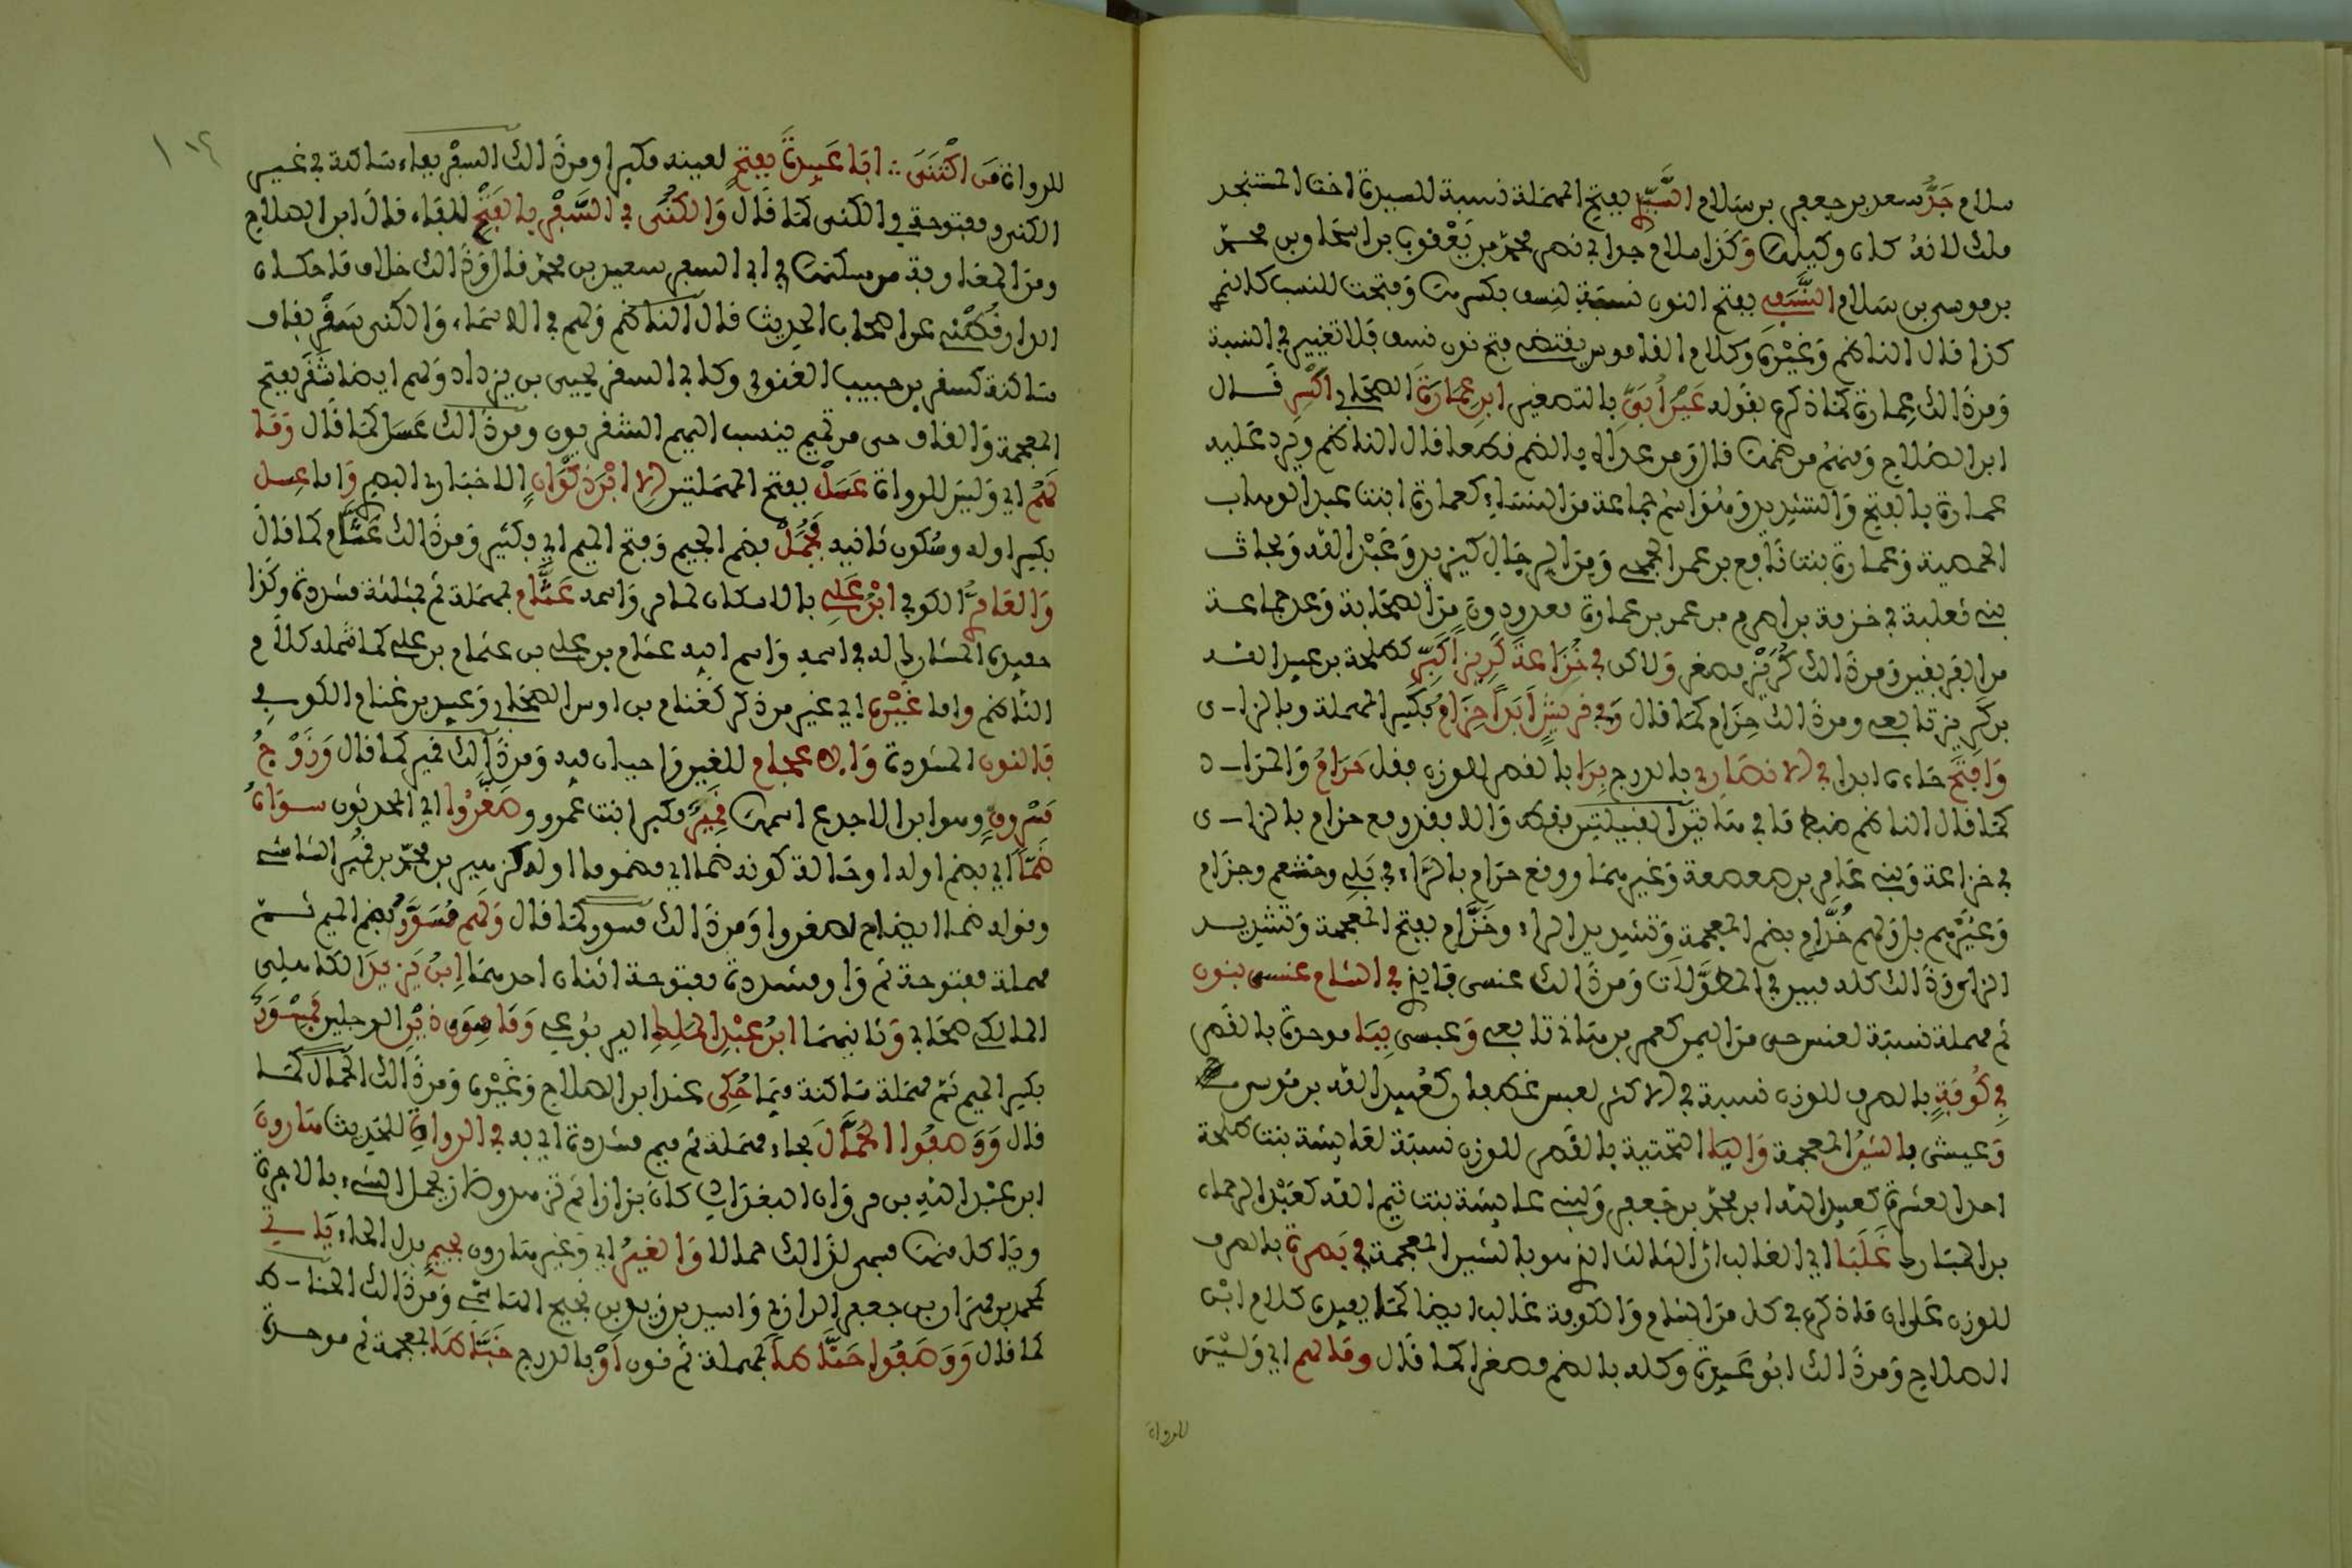 سلام جَدُّ سعد بن جعفر بن سلام السَّيِّدي بفتح المهملة نسبة للسيدة اخت المستنجد
ملك لانه كان وكيلها وَكَذا سلام جد ابي نصر محمد بن يَعْقوب بن اسحاق بن محمد
بن موسى بن سلام النَّسَفي بفتح النون نسبة لنِسف بكسرها وَفتحت للنسب كالنمر
كذا قال الناظم وَغيْره وكلام القاموس يقتضي فتح نون نسف فلا تغيير في النسبة
وَمن ذلك عِمارة كما ذكره بقوله عَيْنَ أُبَيِّ بالتصغير ابن عِمَارَةَ الصحابي اكْسِرِ قال
ابن الصلاح وَمنهم من ضمه قال وَمن عداه بالضم فهما قال الناظم ويرد عليه
عمارة بالفتح وَالتشديد وَهُوَ اسم جماعة من النساء كعمارة ابنت عبد الوهاب
الحمصية وَعمارة بنت نافع بن عمر الجمحي وَمن الرجال كيزيد وَعَبْد الله وَبحاث
بني ثعلبة بن خزمة بن اصرم بن عمر بن عمارة معدودون من الصحابة وَعد جماعة
من الفريقين وَمن ذلك كُرَيْز مصغر وَلاكن في خُزَاعَة كَرِيزٌ كَبِّر كطلحة بن عبيد الله
بن كَرِيز تابعي ومن ذلك حِزَام كما قال وَفي قريشٍ أَبَدًا حِزَامُ بكسر المهملة وبالزاي
وَافتَح حاءه ابدا في الانصار بالدرج بِرَا بالقصر للوزن فقل حَرَامُ وَالمراد
كما قال الناظم ضبط ما في هاتين القبيلتين فقط وَالا فقد وقع حزام بالزاي
في خزاعة وَبني عامر بن صعصعة وَغيرهما ووقع حرام بالراء في بَلي وخثعم وجذام
وَغيْرهم بل وَلهم خُرَّام بضم المعجمة وَتشديد الراء وخَزَّام بفتح المعجمة وَتشديد
الزاي وَذلك كله مبين في المطوَّلات وَمن ذلك عنسي فايز في الشام عنسي بنون
ثم مهملة نسبة لعنس حي من اليمن كعمير بن هانئ تابعي وَعبسي بِبَا موحدة بالقصر
في كُوفَةٍ بالصرف للوزن نسبة في الاكثر لعبس غطفان كعُبيد الله بن موسى
وَعيشي بالشينِ المعجمة وَاليا التحتية بالقصر للوزن نسبة لعايشة بنت طلحة
احد العشرة كعبيد الله ابن محمد بن حفص وَلبني عايشة بنت تيم الله كعَبْد الرحمان
بن المبارك غَلَبَا اي الغالب ان الثالث الذي هو بالشين المعجمة في بَصرة بالصرف
للوزن علوان ما ذكر في كل من الشام وَالكوفة غالب ايضا كما يفيده كلام ابن
الصلاح وَمن ذلك ابُو عَبيدة وكله بالضم مصغرا كما قال وما لهم اي وَليْس
للرواة
للرواة من اكْتَنَى :: ابَا عَبيدةَ بفتح لعينه مكبرا ومن ذلك السفْر بفاء ساكنة في غير
الكنى ومفتوحة في الكنى كما قال وَالكُنَى في السَّفْرِ بالفَتْح للفاء قال ابن الصلاح
ومن المغاربة من سكنها في ابي السفر سعيد بن محمد قال وَذلك خلاف ما حكاه
الدارقُطْني عن اصحاب الحديث قال الناظم وَلهم في الاسماء وَالكنى سَقْر بقاف
ساكنة كسقر بن حبيب الغنوي وكابي السقر يحيى بن يزداد وَلهم ايضا شَقَر بفتح
المعجمة وَالقاف حي من تميم ينسب اليهم الشقريون ومن ذلك عَسَل كما قال وَمَا
لهُمْ اي وَليس للرواة عَسَلْ بفتح المهملتين إلا ابْن ذكْوَانٍ الاخباري البصري وَاما عِسل
بكسر اوله وسُكون ثانيه فَجُمَلْ بضم الجيم وَفتح الميم اي فكثير وَمن ذلك عَثَّام كما قال
وَالعَامِريُّ الكوفي ابْن عَلي بالاسكان لما مر وَاسمه عَثَّام بمهملة ثم بمثلثة مشددة وكذا
حفيده المشارك له في اسمه وَاسم ابيه عثام بن علي بن عثام بن علي كما شمله كلام
الناظم واما غَيْره اي غير من ذكر كغنام بن اوس الصحابي وَعبيد بن غنام الكوفي
فالنون المشددة وَالاعجام للغين وَاجبان فيه وَمن ذلك قمير كما قال وَزَوْجُ
مَسْروقٍ وهو ابن الاجدع اسمها قَمِيرُ مكبر ابنت عمرو وصَغَّرُوا اي المحدثون سواهُ
ضَمًّا اي بضم اوله او حالة كونه ضما اي مضموما اوله كزهير بن محمد بن قُمَيْر الشاشي
وقوله ضما ايضاح لصغروا وَمن ذلك مسور كما قال وَلهم مُسَوَّرٌ بضم الميم ثم
مهملة مفتوحة ثم وَاو مشددة مفتوحة اثنان احدهما إبنُ يَزيدَ الكاهلي
المالكي صحابي وَثانيهما ابنُ عبْدِ الملِكِ اليربوعي وَمَا سِوَى ذيْن الرجلين فمِسْوَرٌ
بكسر الميم ثم مهملة ساكنة فيمَا حُكِي عند ابن الصلاح وَغيْره وَمن ذلك الحمال كما
قال وَوَصَفُوا الحَمَّالَ بحاء مهملة ثم ميم مشددة اي به في الرواة للحديث هارونَ
ابن عبْد الله بن مروان البغدادي كان بزازا ثم تزهد وصار يحمل الشيء بالاجرة
وياكل منها فسمي لذلك حمالا وَالغيرُ اي وَغير هارون بجيمٍ بدل الحاء يَاتي
كمحمد بن مهران بن جعفر الرازي وَاسيد بن زيد بن نجيح الهاشمي وَمن ذلك الحناط
كما قال وَوَصَفُوا حَنَّاطًا بمهملة ثم نون أوْ بالدرج خَبَّاطَا بمعجمة ثم موحدة